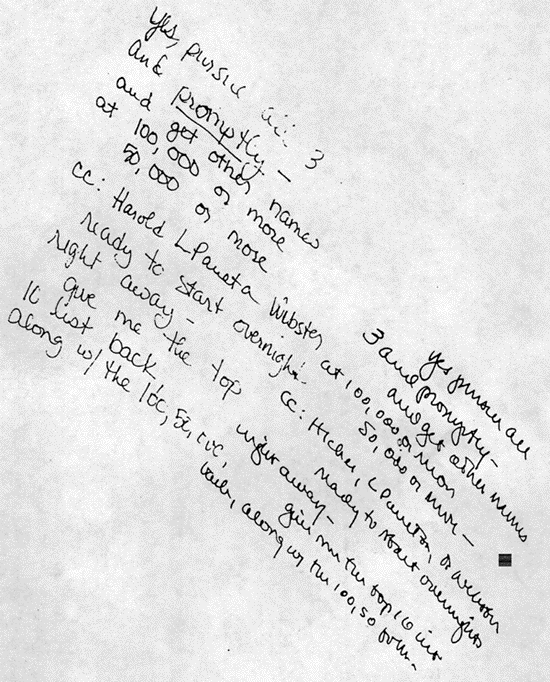 yes, pursue all 3
and promptly –
and get other names
at 100,000 or more
50,000 or more
cc: Harold L Panetta Webster
ready to start overnight
right away –
give me the top
10 list back
along w/ the 100, 50,
yes pursue all
3 and promptly –
and get other names
at 100,000 or more
50,000 or more –
cc: L Panetta,
ready to start overnights
right away –
give me the top 10 list
back, along w/ the 100, 50